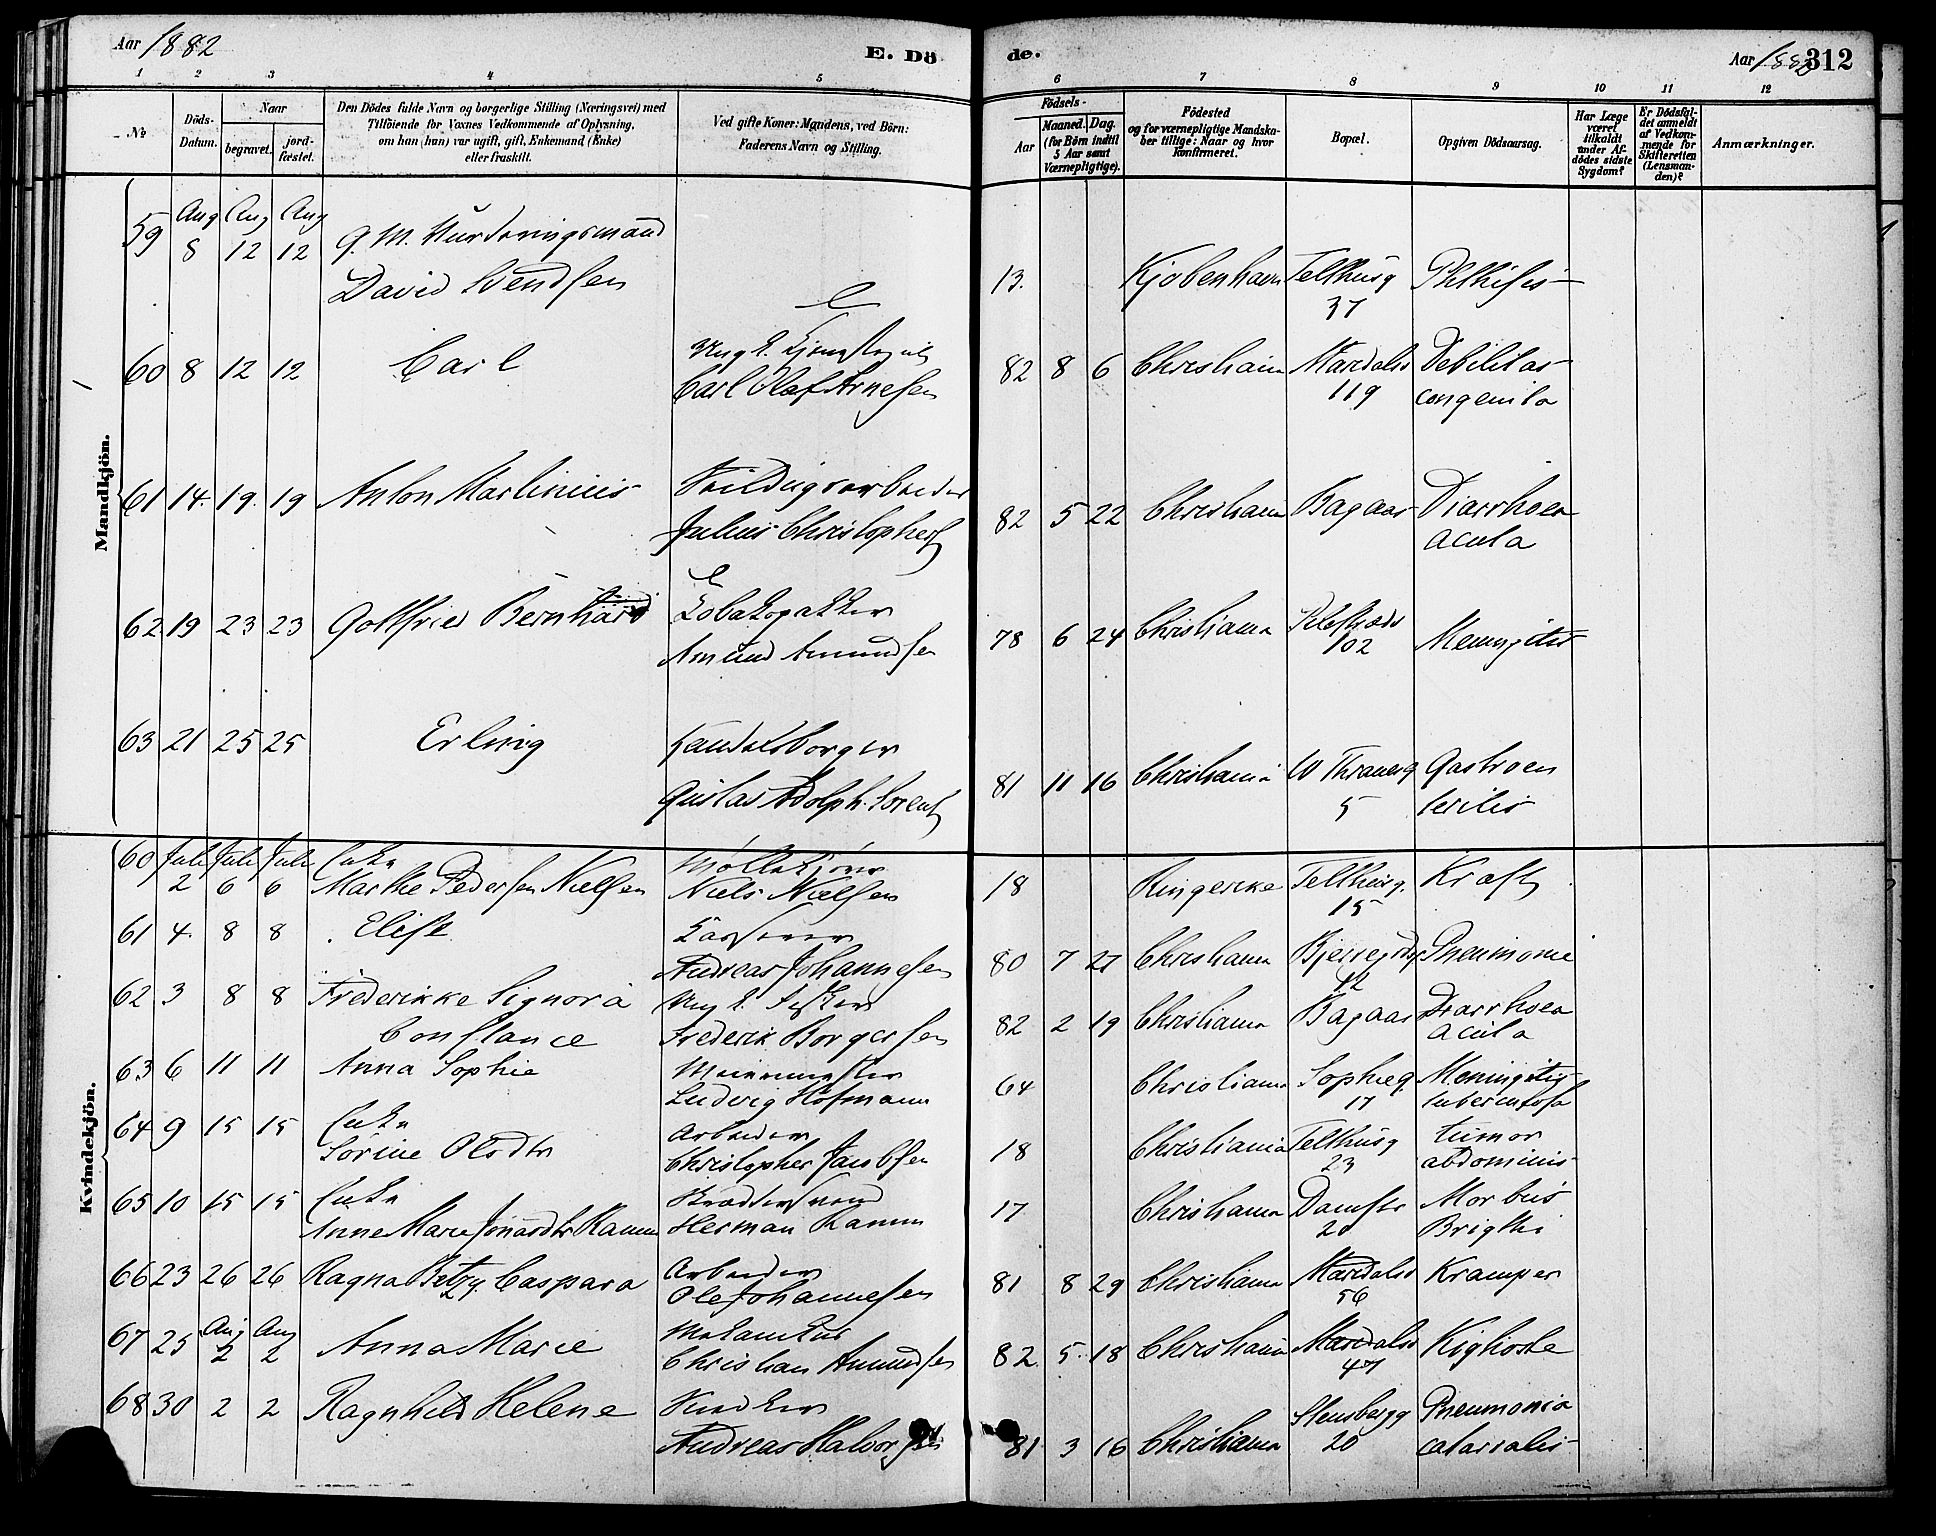 Aar 1882
E. Dö
de.
Aar 1882 312
1 2 3 4 5 6 7 8 9 10 11 12
No
Döds-Datum.
Naar
begravet.
jordfæstet.
Den Dödes fulde Navn og borgerlige Stilling (Næringsvei) med
Tilföiende for Voxnes Vedkommende af Oplysning,
om han (hun) var ugift, gift, Enkemand (Enke)
eller fraskilt.
Ved gifte Koner: Mandens, ved Börn:
Faderens Navn og Stilling.
Födsels-
Aar
Maaned. Dag.
(for Börn indtil
5 Aar samt
Værnepligtige).
Födested
og for værnepligtige Mandska-
ber tillige: Naar og hvor
Konfirmeret.
Bopæl.
Opgiven Dödsaarsag.
Har Læge
været
tilkaldt
under Af-
dödes sidste
Sygdom?
Er Dödsfal-
det anmeldt
af Vedkom-
mende for
Skifteretten
(Lensman-
den)?
Anmærkninger.
Mandkjön.
59 Aug 8 Aug 12 Aug 12 G. M. Vurderingsmand
David Svendsen 13. Kjøbenhavn Telthusg 37 Phthisis
60 8 12 12 Carl
Carl Olaf Arnesen 82 8 6 Christiania Maridalsv 119 Debilitas
congenita
61 14. 19. 19 Anton Martinius
Julius Christophers 82 5 22 Christiania Bagaas Diarrhoea
acuta
62 19 23 23 Gottfried Bernhard Tobakspakker
Amund Amundsen 78 6 24 Christiania 102 Meningitis
63 21 25 25 Erling Handelsborger
Gustav Adolph Sorens 81 11 16 Christiania W Thranesg 5 Gastroen
teritis
Kvindekjön.
60 Juli 2 Juli 6 Juli 6 Enke
Marthe Pedersen Nielsen
Niels Nielsen 18 Ringerike Telthusg. 15 Kræft
61 4. 8 8 Elise
Andreas Johannesen 80 7 27 Christiania Bjerregdsg 42 Pneumonie
62 3 8 8 Frederikke Signora
Constance
Frederik Borgersen 82 2 19 Christiania Bagaas Diarrhoea
acuta
63 6 11 11 Anna Sophie Murmester
Ludvig Hofmann 64 Christiania Sophieg. 17 Meningitis
tuberculosa
64 9 15 15 Enke
Sörine Olsdtr Arbeider
Christopher Jacobsen 18 Christiania Telthusg 23 tumor
abdominis
65 10 15 15 Enke
Anne Marie Jonasdtr Ramm
Herman Ramm 17 Christiania Damstr 20 Morbus
Brigthi
66 23 26 26 Ragna Betzy Caspara Arbeider
Ole Johannesen 81 8 29 Christiania Maridalsv 56 Kramper
67 25 Aug 2 Aug 2 Anna Marie Mekanikus
Christian Amundsen 82. 5. 18 Christiania Maridalsv 47 Kighoste
68 30 2 2 Ragnhild Helene Snedker
Andreas Halvorsen 81 3 16 Christiania Stensbergg 20 Pneumonia
catarralis